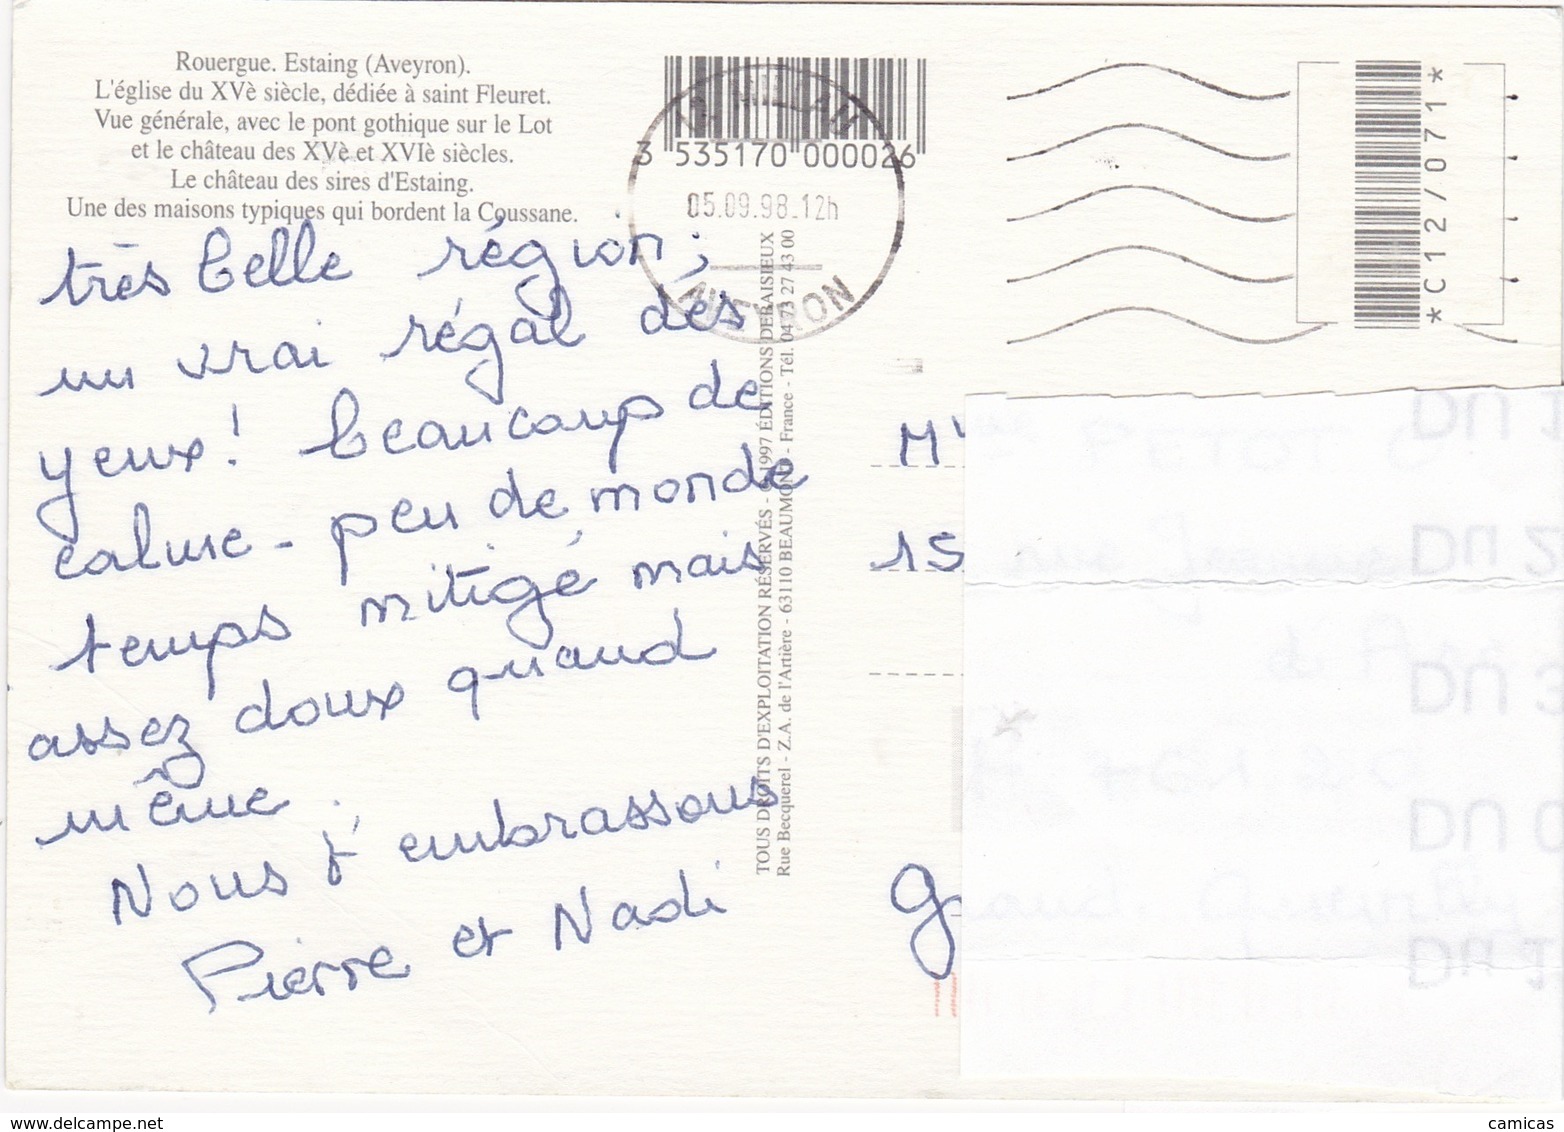 Rouergue. Estaing (Aveyron).
L'église du XVè siècle, dédiée à saint Fleuret.
Vue générale, avec le pont gothique sur le Lot
et le château des XVè et XVIè siècles.
Le château des sires d'Estaing.
Une des maisons typiques qui bordent la Coussane.
3 535170 000026
MILLAU
05.09.98-12h
AVEYRON
*C12/071*
très belle région,
un vrai régal des
yeux! beaucoup de
calme - peu de monde
temps mitigé mais
assez doux quand
même.
Nous t'embrassons
Pierre et Nadi
TOUS DROITS D'EXPLOITATION RÉSERVÉS - © 1997 ÉDITIONS DEBAISIEUX
Rue Becquerel - Z.A. de l'Artière - 63110 BEAUMONT - France - Tél. 04 73 27 43 00
M
15
g
DU 1
DU 2
DU 3
DU 0
DU 1
www.delcampe.net
camicas